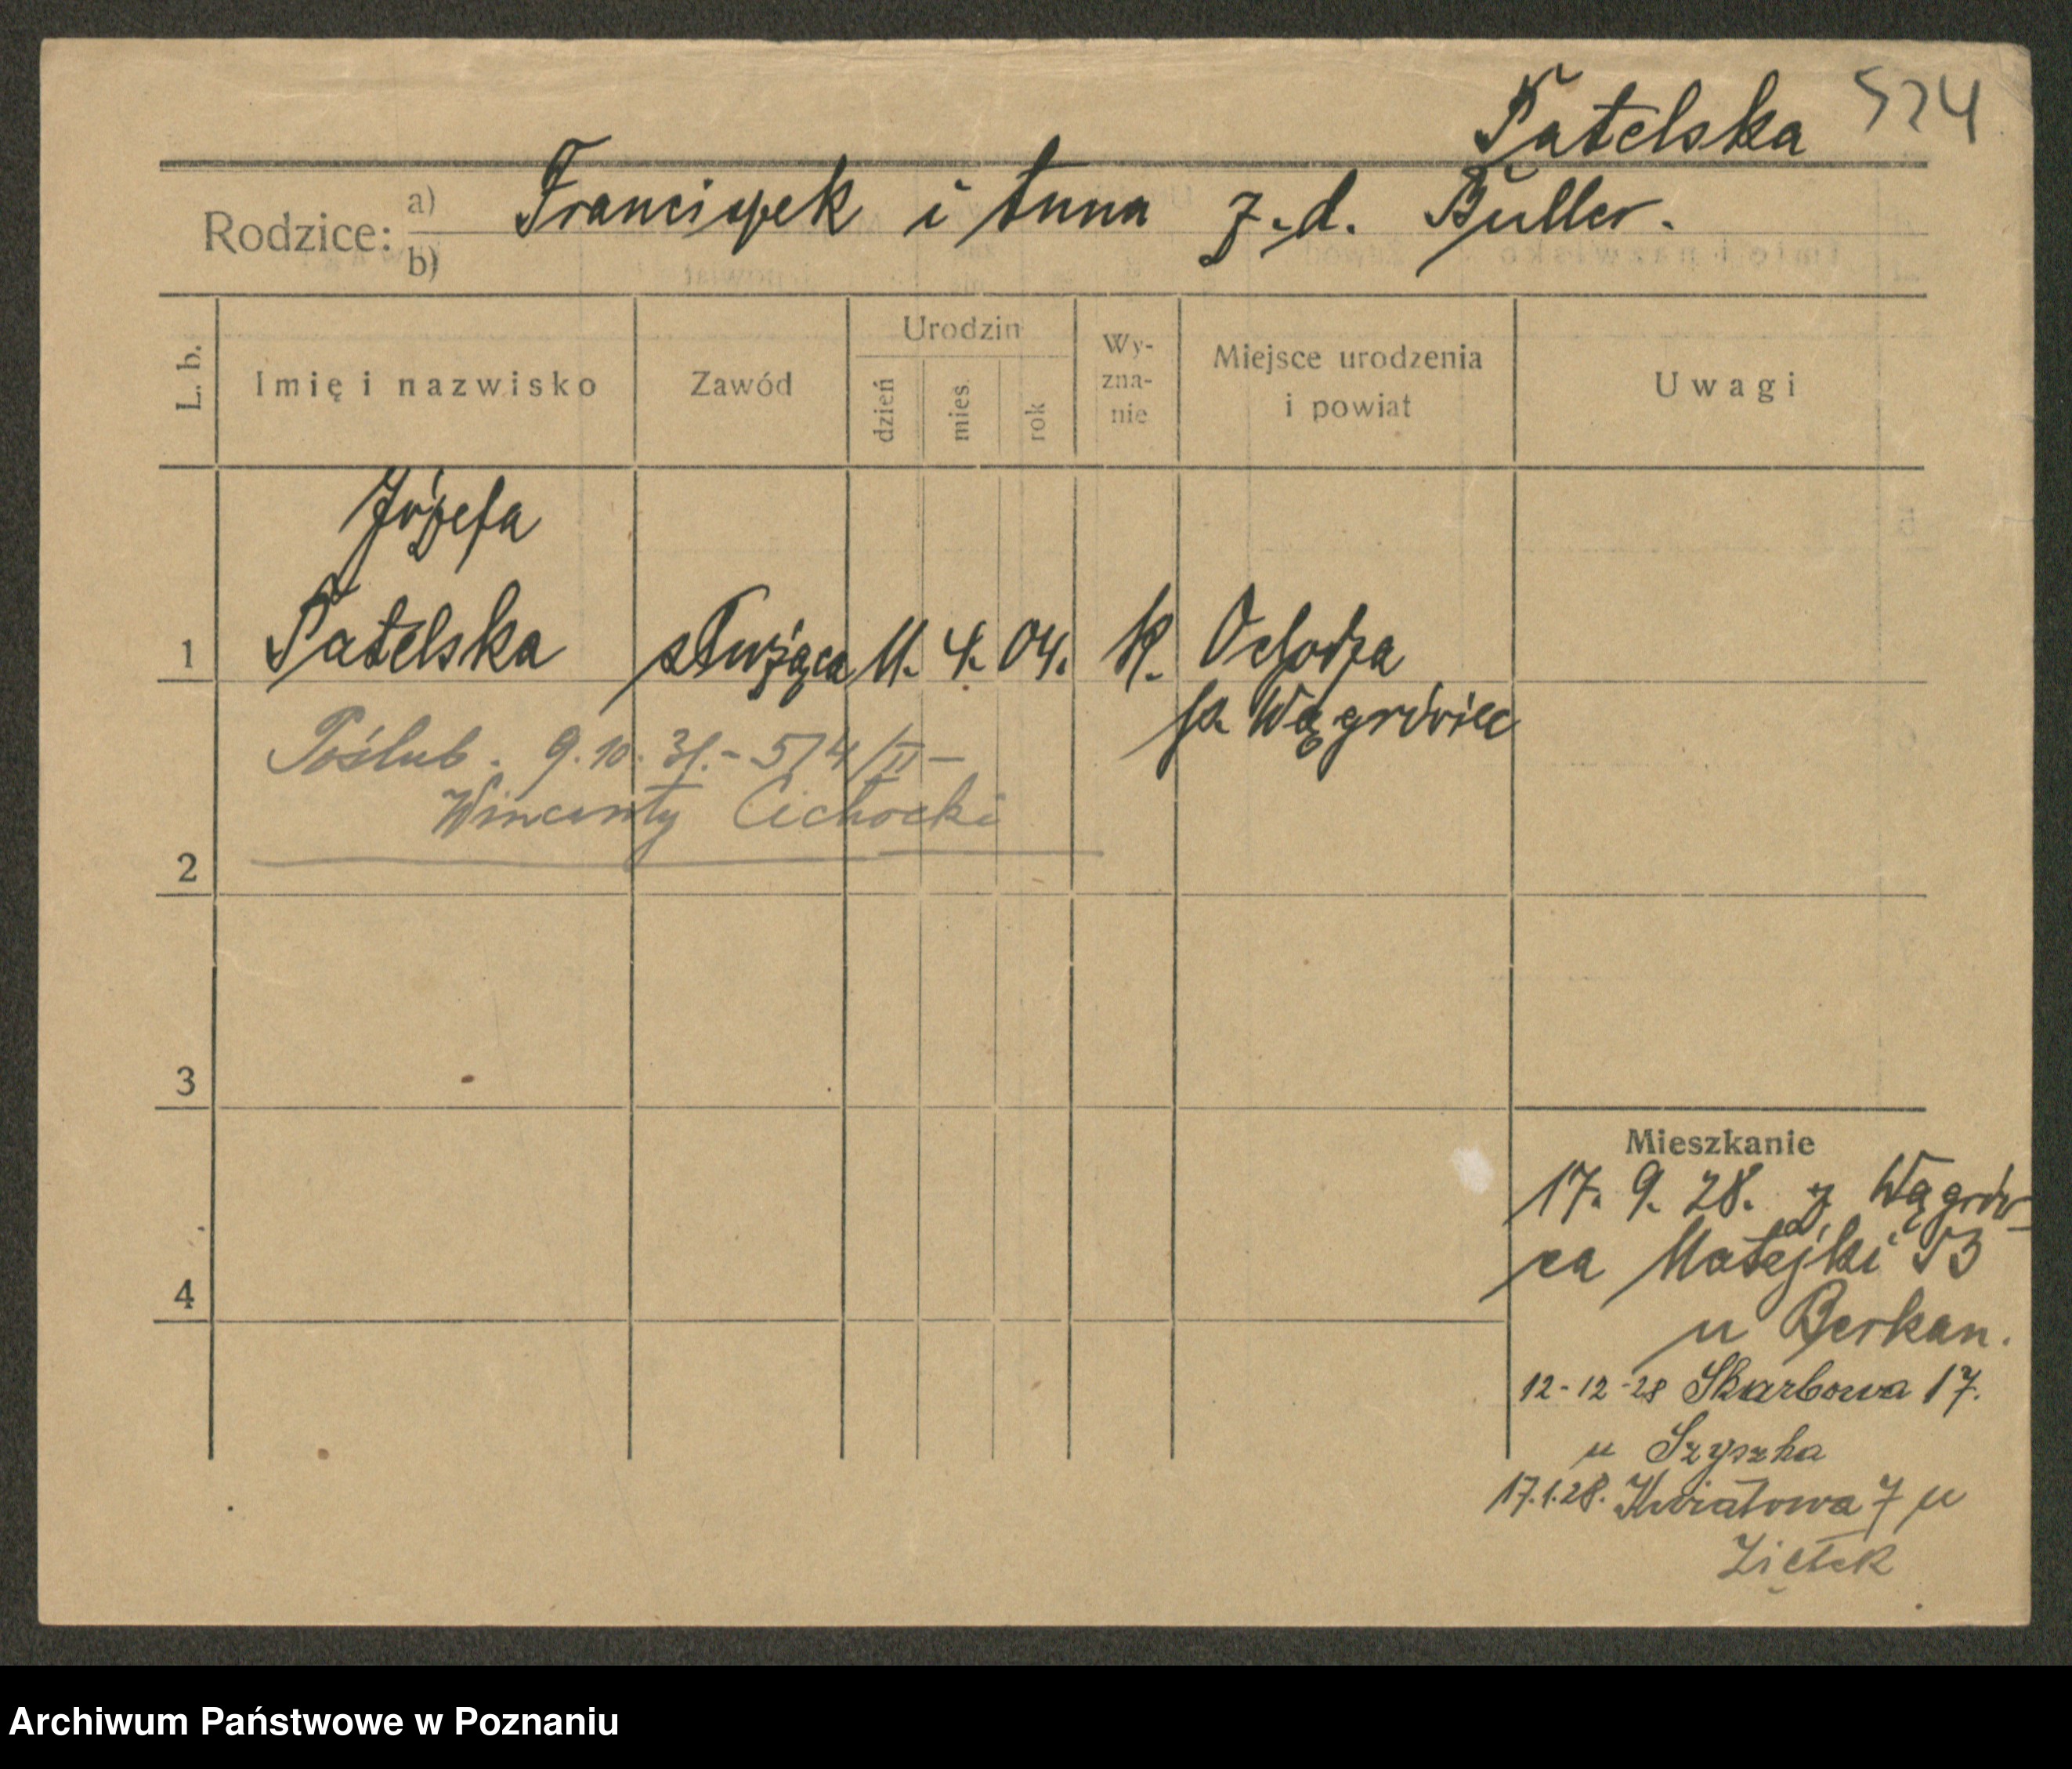 Patelska 524
Rodzice: a) Franciszek i Anna z. d. Buller.
b)
L. b.
Imię i nazwisko
Zawód
Urodzin
dzień
mies.
rok
Wy-
zna-
nie
Miejsce urodzenia
i powiat
Uwagi
Józefa
1 Patelska służąca 11. 4. 04. K. Ochodza
p. Wągrówiec
Poślub. 9.10.31.- 574/II -
Wincenty Cichocki
2
3
4
Mieszkanie
17. 9. 28. z Wągrów-
ca Matejki 53
u Berkan.
12-12-28 Skarbowa 17.
u Szyszka
17.1.28. Kwiatowa 7 u
Ziętek
Archiwum Państwowe w Poznaniu